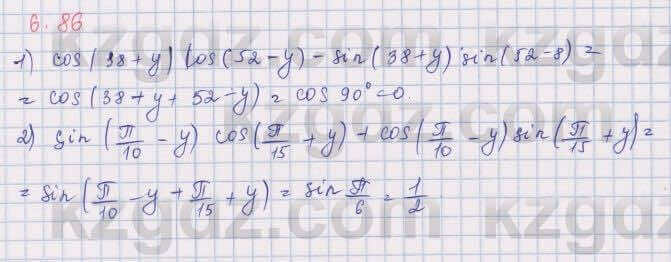 6.86
1) cos(38+y) cos(52-y) - sin(38+y) sin(52-8) =
= cos(38+y+52-y) = cos 90° = 0.
2) sin(π/10 - y) cos(π/15 + y) + cos(π/10 - y) sin(π/15 + y) =
= sin(π/10 - y + π/15 + y) = sin π/6 = 1/2
kzgdz.com